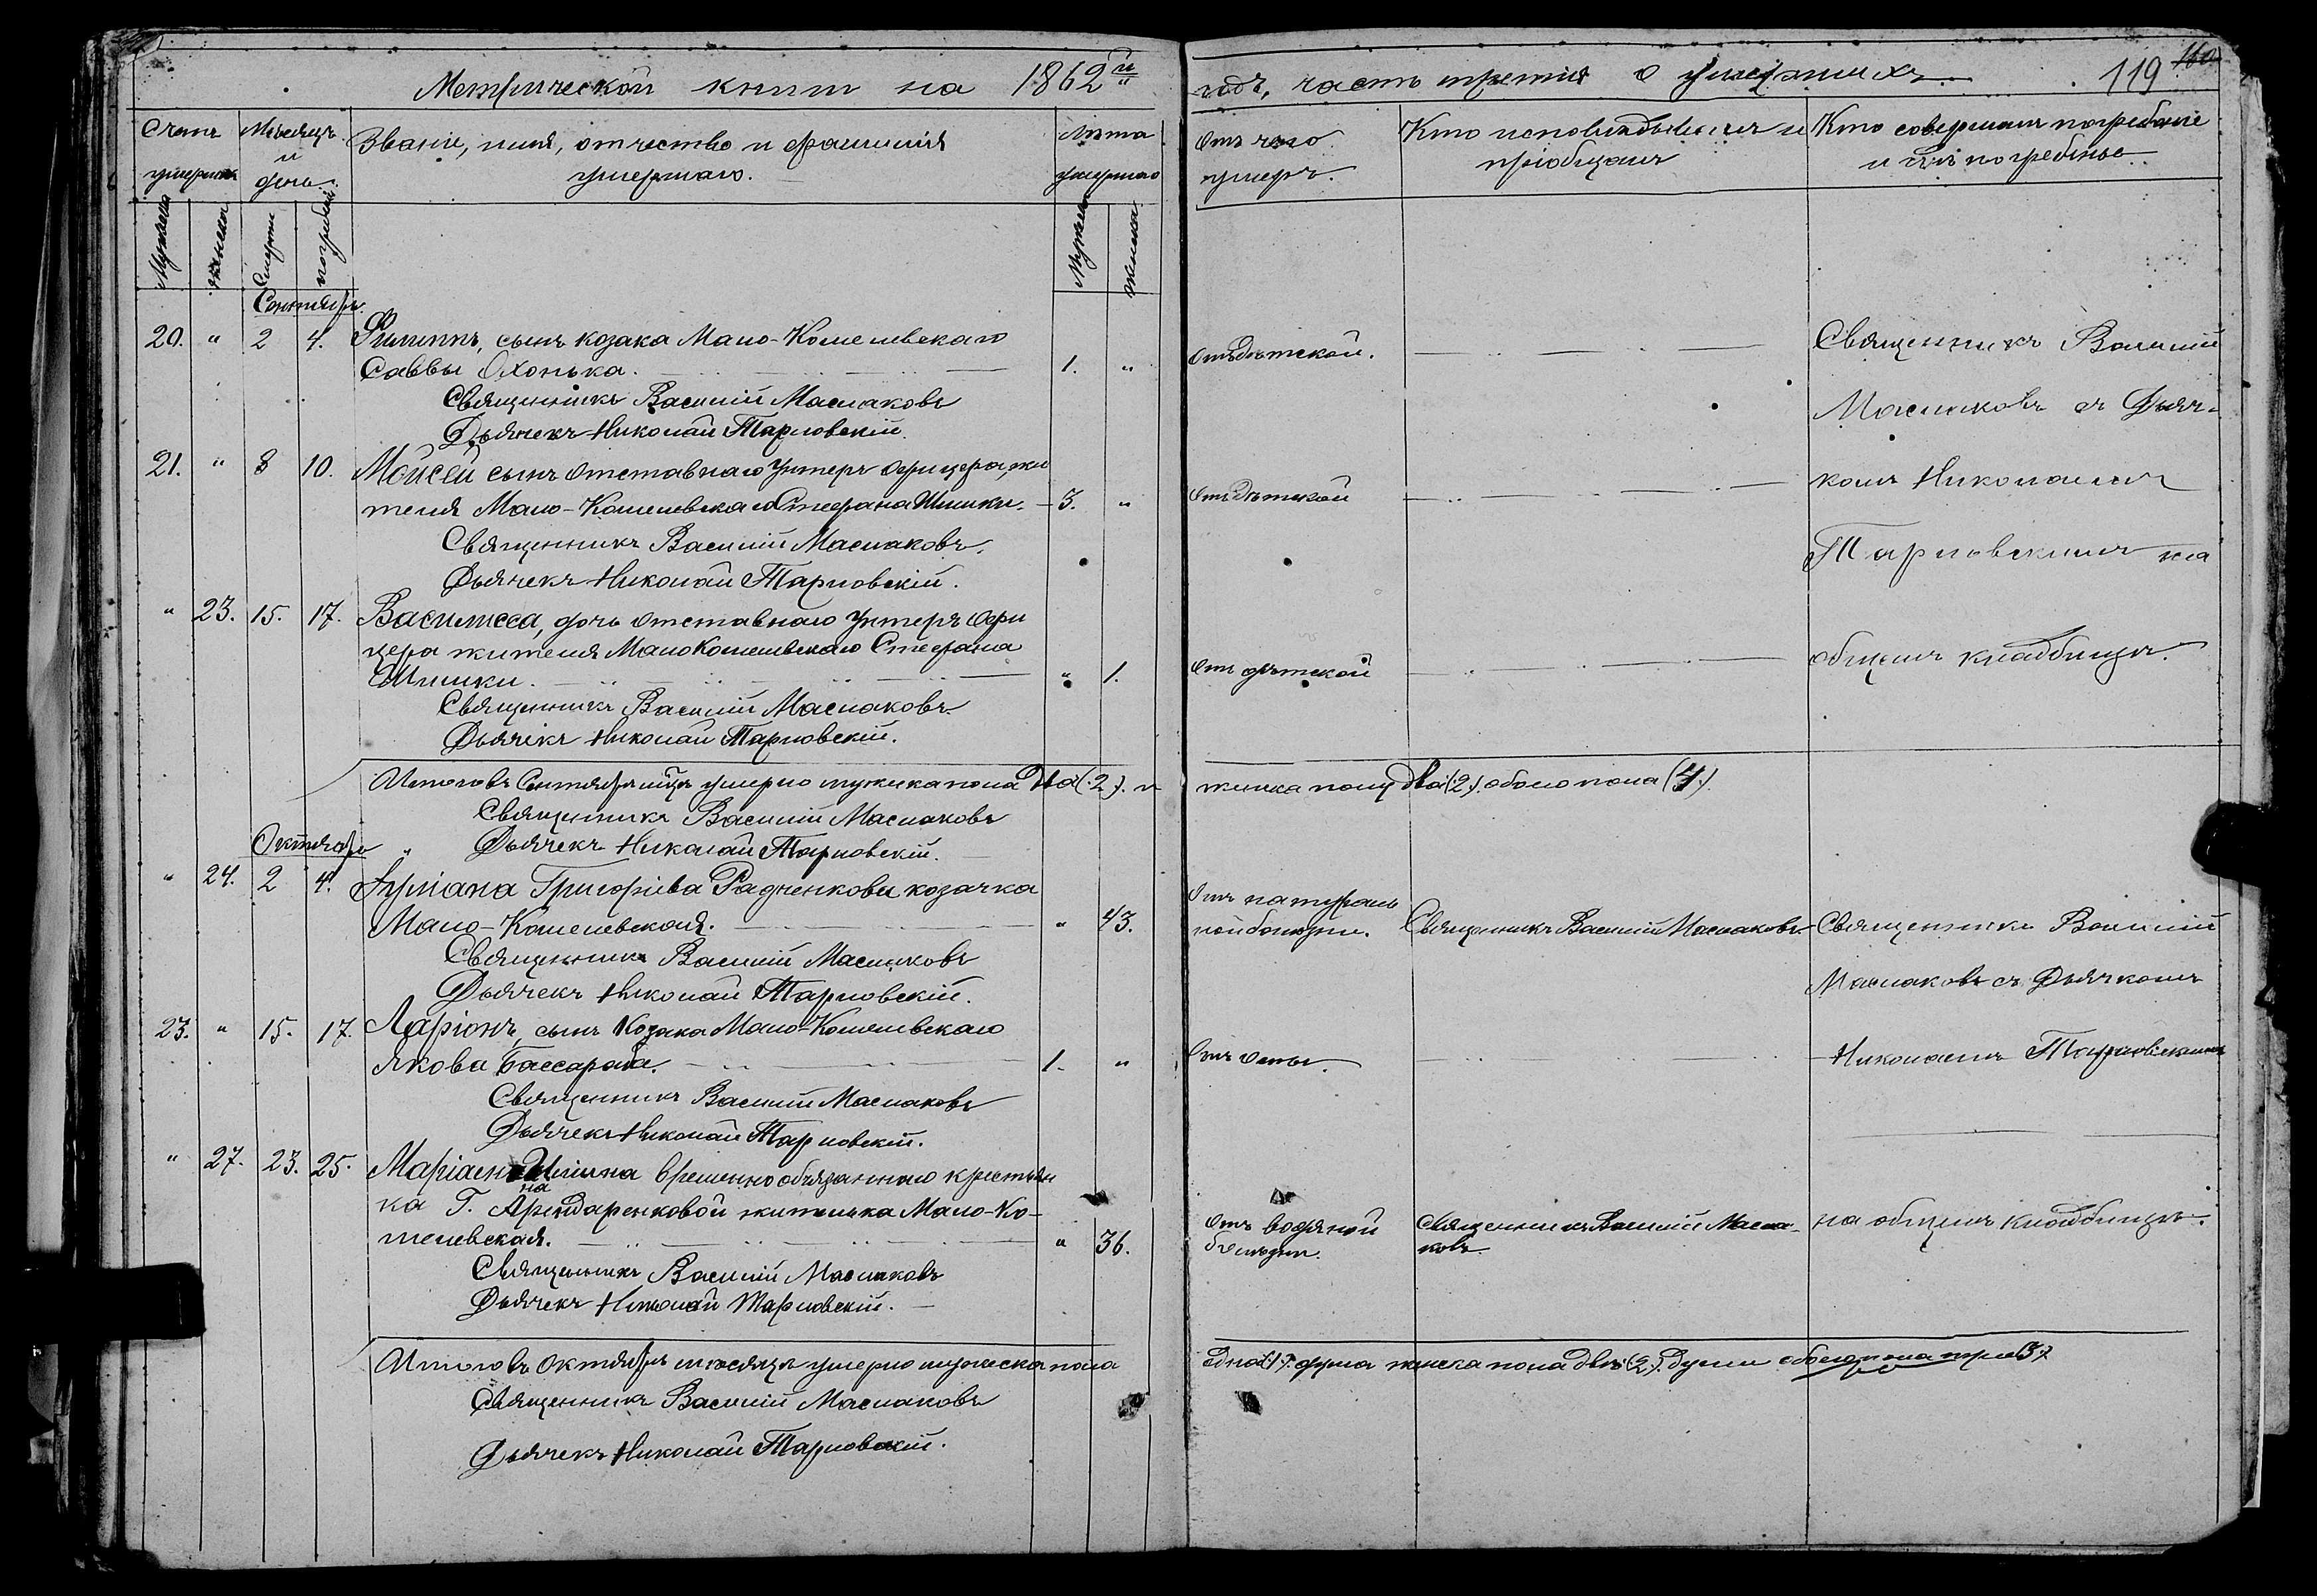 Метрической книги на 1862й
годъ, часть третія о умершихъ 119
160
Счетъ умершихъ
Мѣсяцъ и день
Званіе, имя, отчество и фамилія умершаго.
Лѣта умершаго
Отъ чего умеръ.
Кто исповѣдывалъ и пріобщалъ
Кто совершалъ погребеніе и гдѣ погребены
Мужеска
женска
Смерти
погребенія
Мужеска
женска
Сентябрь
20. " 2 4. Филиппъ, сынъ козака Мало-Кошелевскаго
Саввы Охонька. 1. " Отъ дѣтской.
Священникъ Василій Маслаковъ
Дьячекъ Николай Тарновскій.
21. " 8 10. Мойсей сынъ отставнаго Унтеръ офицера, жи
теля Мало-Кошелевскаго Стефана Шишки. 3. " Отъ дѣтской
Священникъ Василій Маслаковъ.
Дьячекъ Николай Тарновскій.
" 23. 15. 17. Василисса, дочь отставнаго Унтеръ офи
цера жителя Мало Кошелевскаго Стефана
Шишки. " 1. Отъ дѣтской
Священникъ Василій Маслаковъ
Дьячекъ Николай Тарновскій.
Священникъ Василій
Маслаковъ съ Дьяч-
комъ Николаемъ
Тарновскимъ на
общемъ кладбищѣ.
Итого въ Сентябрѣ умерло мужеска пола два (2). и
женска полу два (2). обоего пола (4).
Священникъ Василій Маслаковъ
Дьячекъ Николай Тарновскій.
Октябрь
" 24. 2 4. Григоріева Радченкова козачка
Мало-Кошелевская. " 43.
Отъ натураль
ной болезни. Священникъ Василій Маслаковъ
Священникъ Василій Маслаковъ
Дьячекъ Николай Тарновскій.
23. " 15. 17. Ларіонъ, сынъ Козака Мало-Кошелевскаго
Якова Бассараба. 1. " Отъ оспы.
Священникъ Василій Маслаковъ
Дьячекъ Николай Тарновскій.
" 27. 23. 25. Ильина временно обязанного крестьян
ка Г. Арендаренковой жителька Мало-Ко-
на
шелевская. " 36.
Отъ водяной
болезни.
Священникъ Василій Масла-
ковъ
Священникъ Василій Маслаковъ
Дьячекъ Николай Тарновскій.
Священникъ Василій
Маслаковъ съ Дьячкомъ
Николаемъ Тарновскимъ
на общемъ кладбищѣ.
Итого въ Октябрѣ мѣсяцѣ умерло мужеска пола
одна (1) душа женска пола двѣ (2). души обоего пола три (3)
Священникъ Василій Маслаковъ
Дьячекъ Николай Тарновскій.